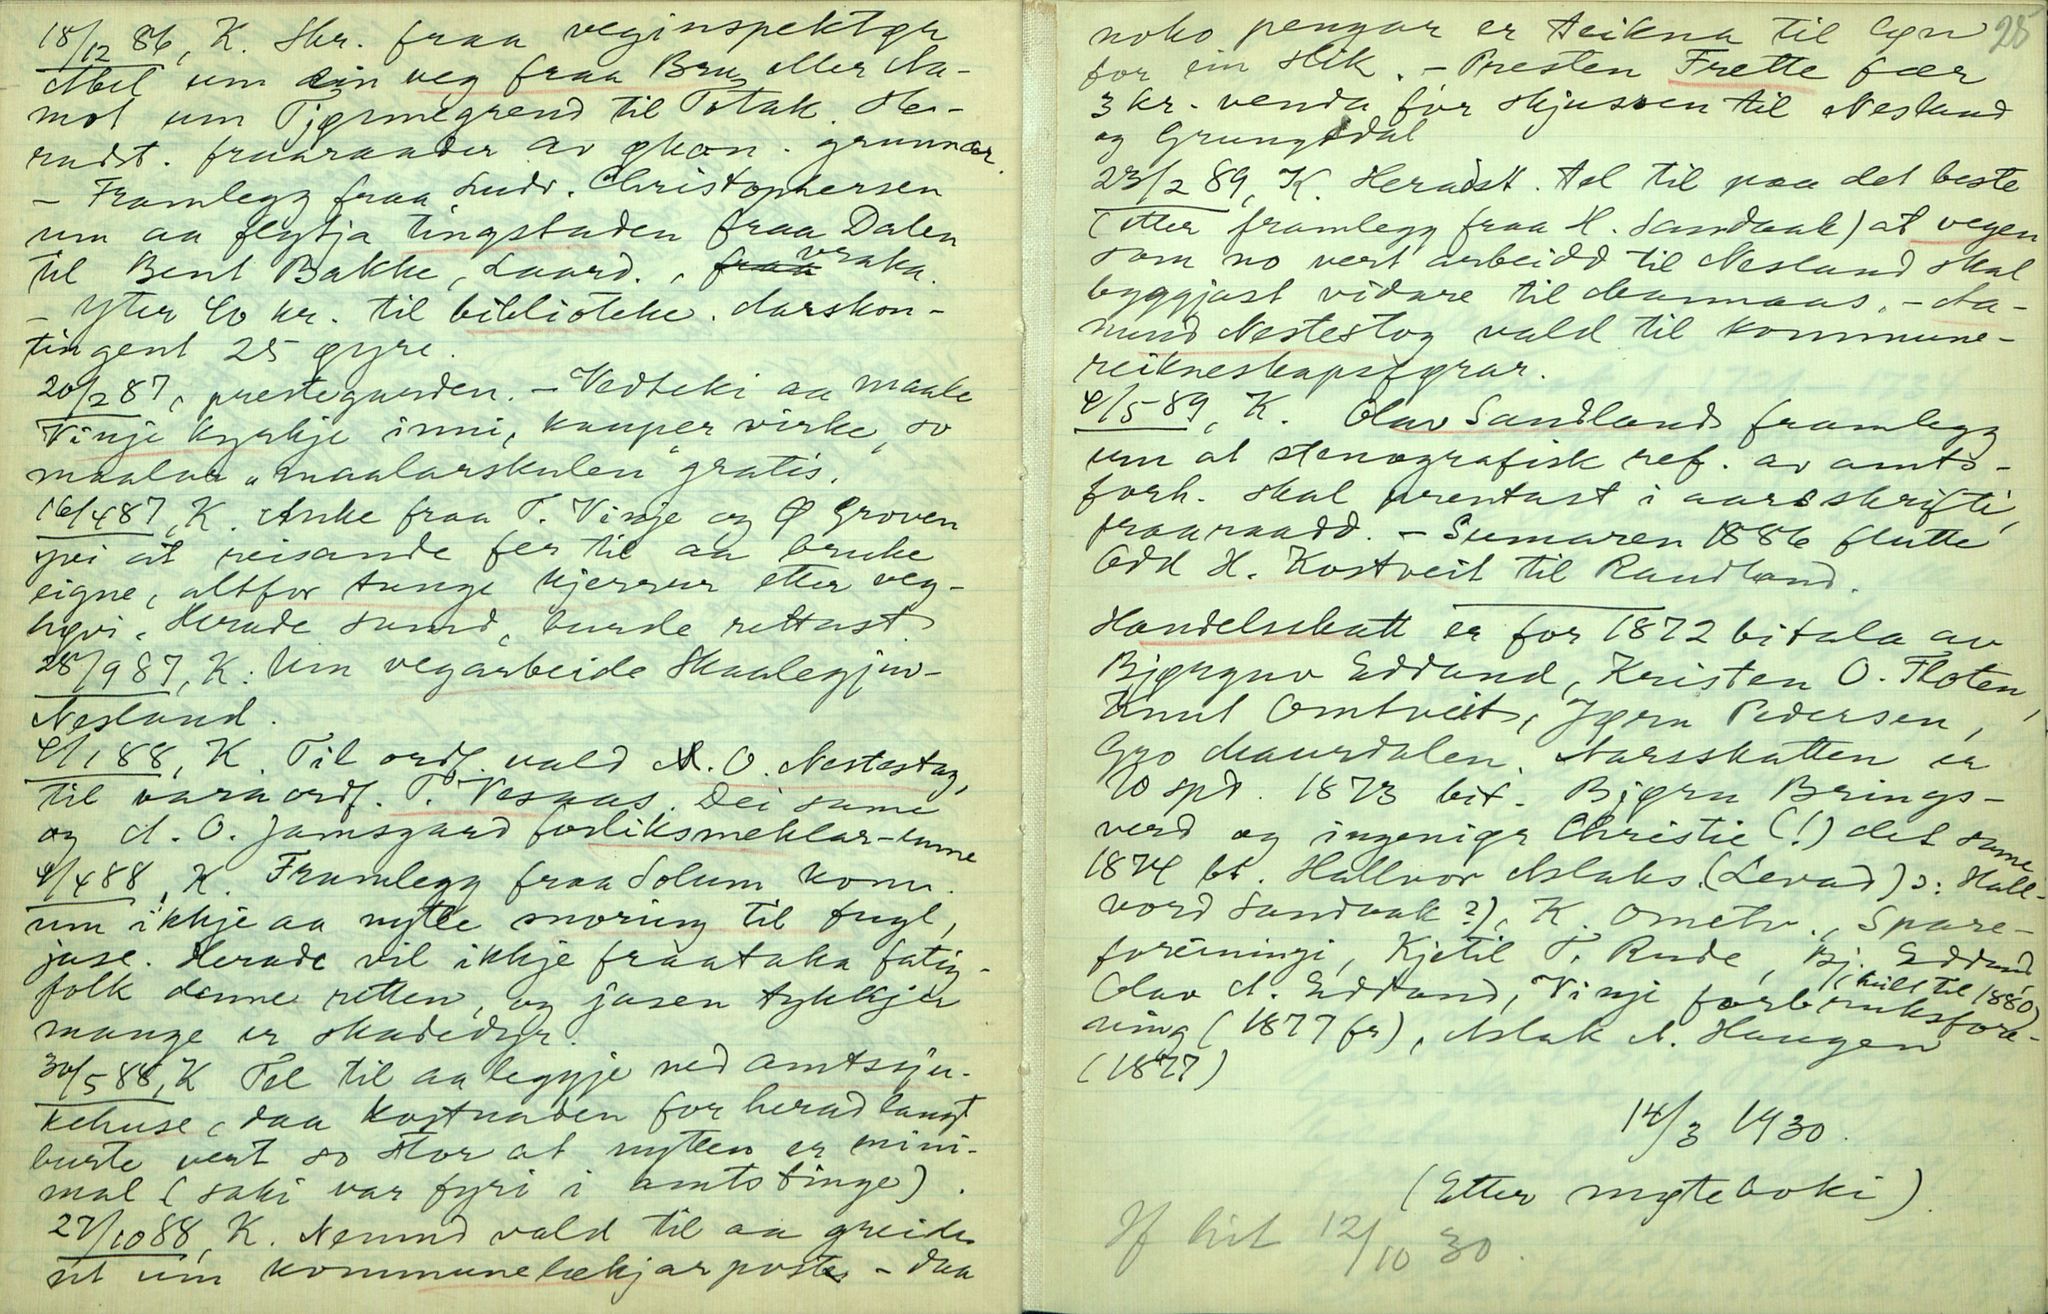 18/12 86, K. Skr. fraa veginspektør
Abel um ein veg fraa Bru eller Aa-
mot um Tjønnegrend til Totak. He-
radst. fraaraader av økon. grunnar.
- Framlegg fraa Ludv. Christophersen
um aa flytja tingstaden fraa Dalen
til Bent Bakke, Laard., vraka.
- Yter 40 kr. til biblioteke. Aarskon-
tingent 25 øyre.
20/2 87, prestegarden. - Vedteki aa maale
Vinje kyrkje inni, kauper virke, so
maalar "maalarskulen" gratis.
16/4 87, K. Anke fraa T. Vinje og Ø Groven
yvi at reisande fer til aa bruke
eigne, altfor tunge kjerrur etter veg-
løvi. Herade samd, burde rettast.
28/9 87, K: Um vegarbeide Skaalegjuv-
Nesland.
4/1 88, K. Til ordf. vald A. O. Nestestog,
til varaordf. T. Vesaas. Dei same
og A. O. Jamsgard forliksmeklar-emne
4/4 88, K. Framlegg fraa Solum komm.
um ikkje aa nytte snoring til fugl,
jase. Herade vil ikkje fraataka fatig-
folk denne retten, og jasen tykkjer
mange er skadedyr.
30/5 88, K Tel til aa leggje ned amtssju-
kehuse, daa kostnaden for herad langt
burte vert so stor at nytten er mini-
mal (saki var fyri i amtstinge).
27/10 88, K. Nemnd vald til aa greide
ut um kommunelækjarposte - daa
noko pengar er teikna til løn 25
for ein slik. - Presten Frette fær
3 kr. venda for skjussen til Nesland
og Grungedal
23/2 89, K. Heradst. tel til paa det beste
(etter framlegg fraa H. Sandbak) at vegen
som no vert arbeidd til Nesland skal
byggjast vidare til Aamaas. - Aa-
mund Nestestog vald til kommune-
reikneskapsførar.
4/5 89, K. Olav Sandlands framlegg
um at stenografisk ref. av amts-
forh. skal prentast i aarsskrifti,
fraaraadd. - Sumaren 1886 flutte
Odd H. Kostveit til Randland.
Handelsskatt er for 1872 bitala av
Bjørgnv Edland, Kristen O. Floten,
Knut Omtveit, Jørn Pedersen,
Gro Maurdalen. Aarsskatten er
20 spd. 1873 bit. Bjørn Brings-
verd og ingeniør Christie (!) det same
1874 bt. Hallvor Aslaks. (Levad) ɔ: Hall-
vord Sandbak?), K. Ometv., Spare-
foreiningi, Kjetil T. Rude, Bj. Edland
(heilt til 1880)
Olav A. Edland, Vinje forbruksfore-
ning (1877 fr), Aslak A. Haugen
(1877)
14/3 1930.
(Etter møteboki)
Jf hit 12/10 30.